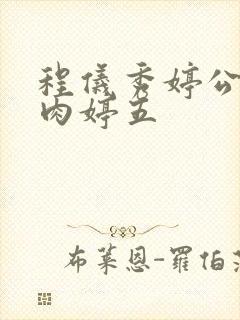 程儀秀婷公
肉婷五
布萊恩-羅伯